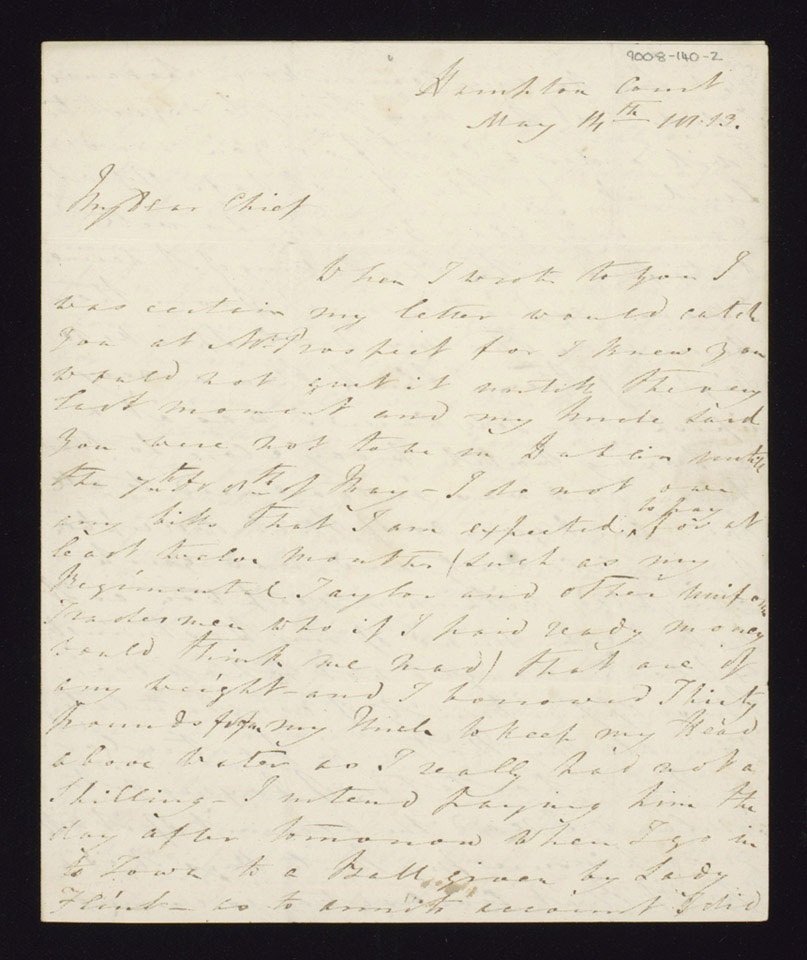 9008-140-2
Hampton Court
May 14th 1813.
My Dear Chief
When I wrote to you I
was certain my letter would catch
you at Mt. Prospect for I knew you
would not quit it untill the very
last moment and my Uncle said
you were not to be in Dublin untill
the 7th or 8th of May - I do not owe
any bills that I am expected to pay for at
least twelve months (such as my
Regimental Taylor and other uniform
Tradesmen who if I paid ready money
would think me mad) that are of
any weight - and I borrowed Thirty
Pounds from my Uncle to keep my Head
above water as I really had not a
Shilling - I intend paying him the
day after tomorrow when I go in
to Town to a Ball given by Lady
Flint - as to army account I did